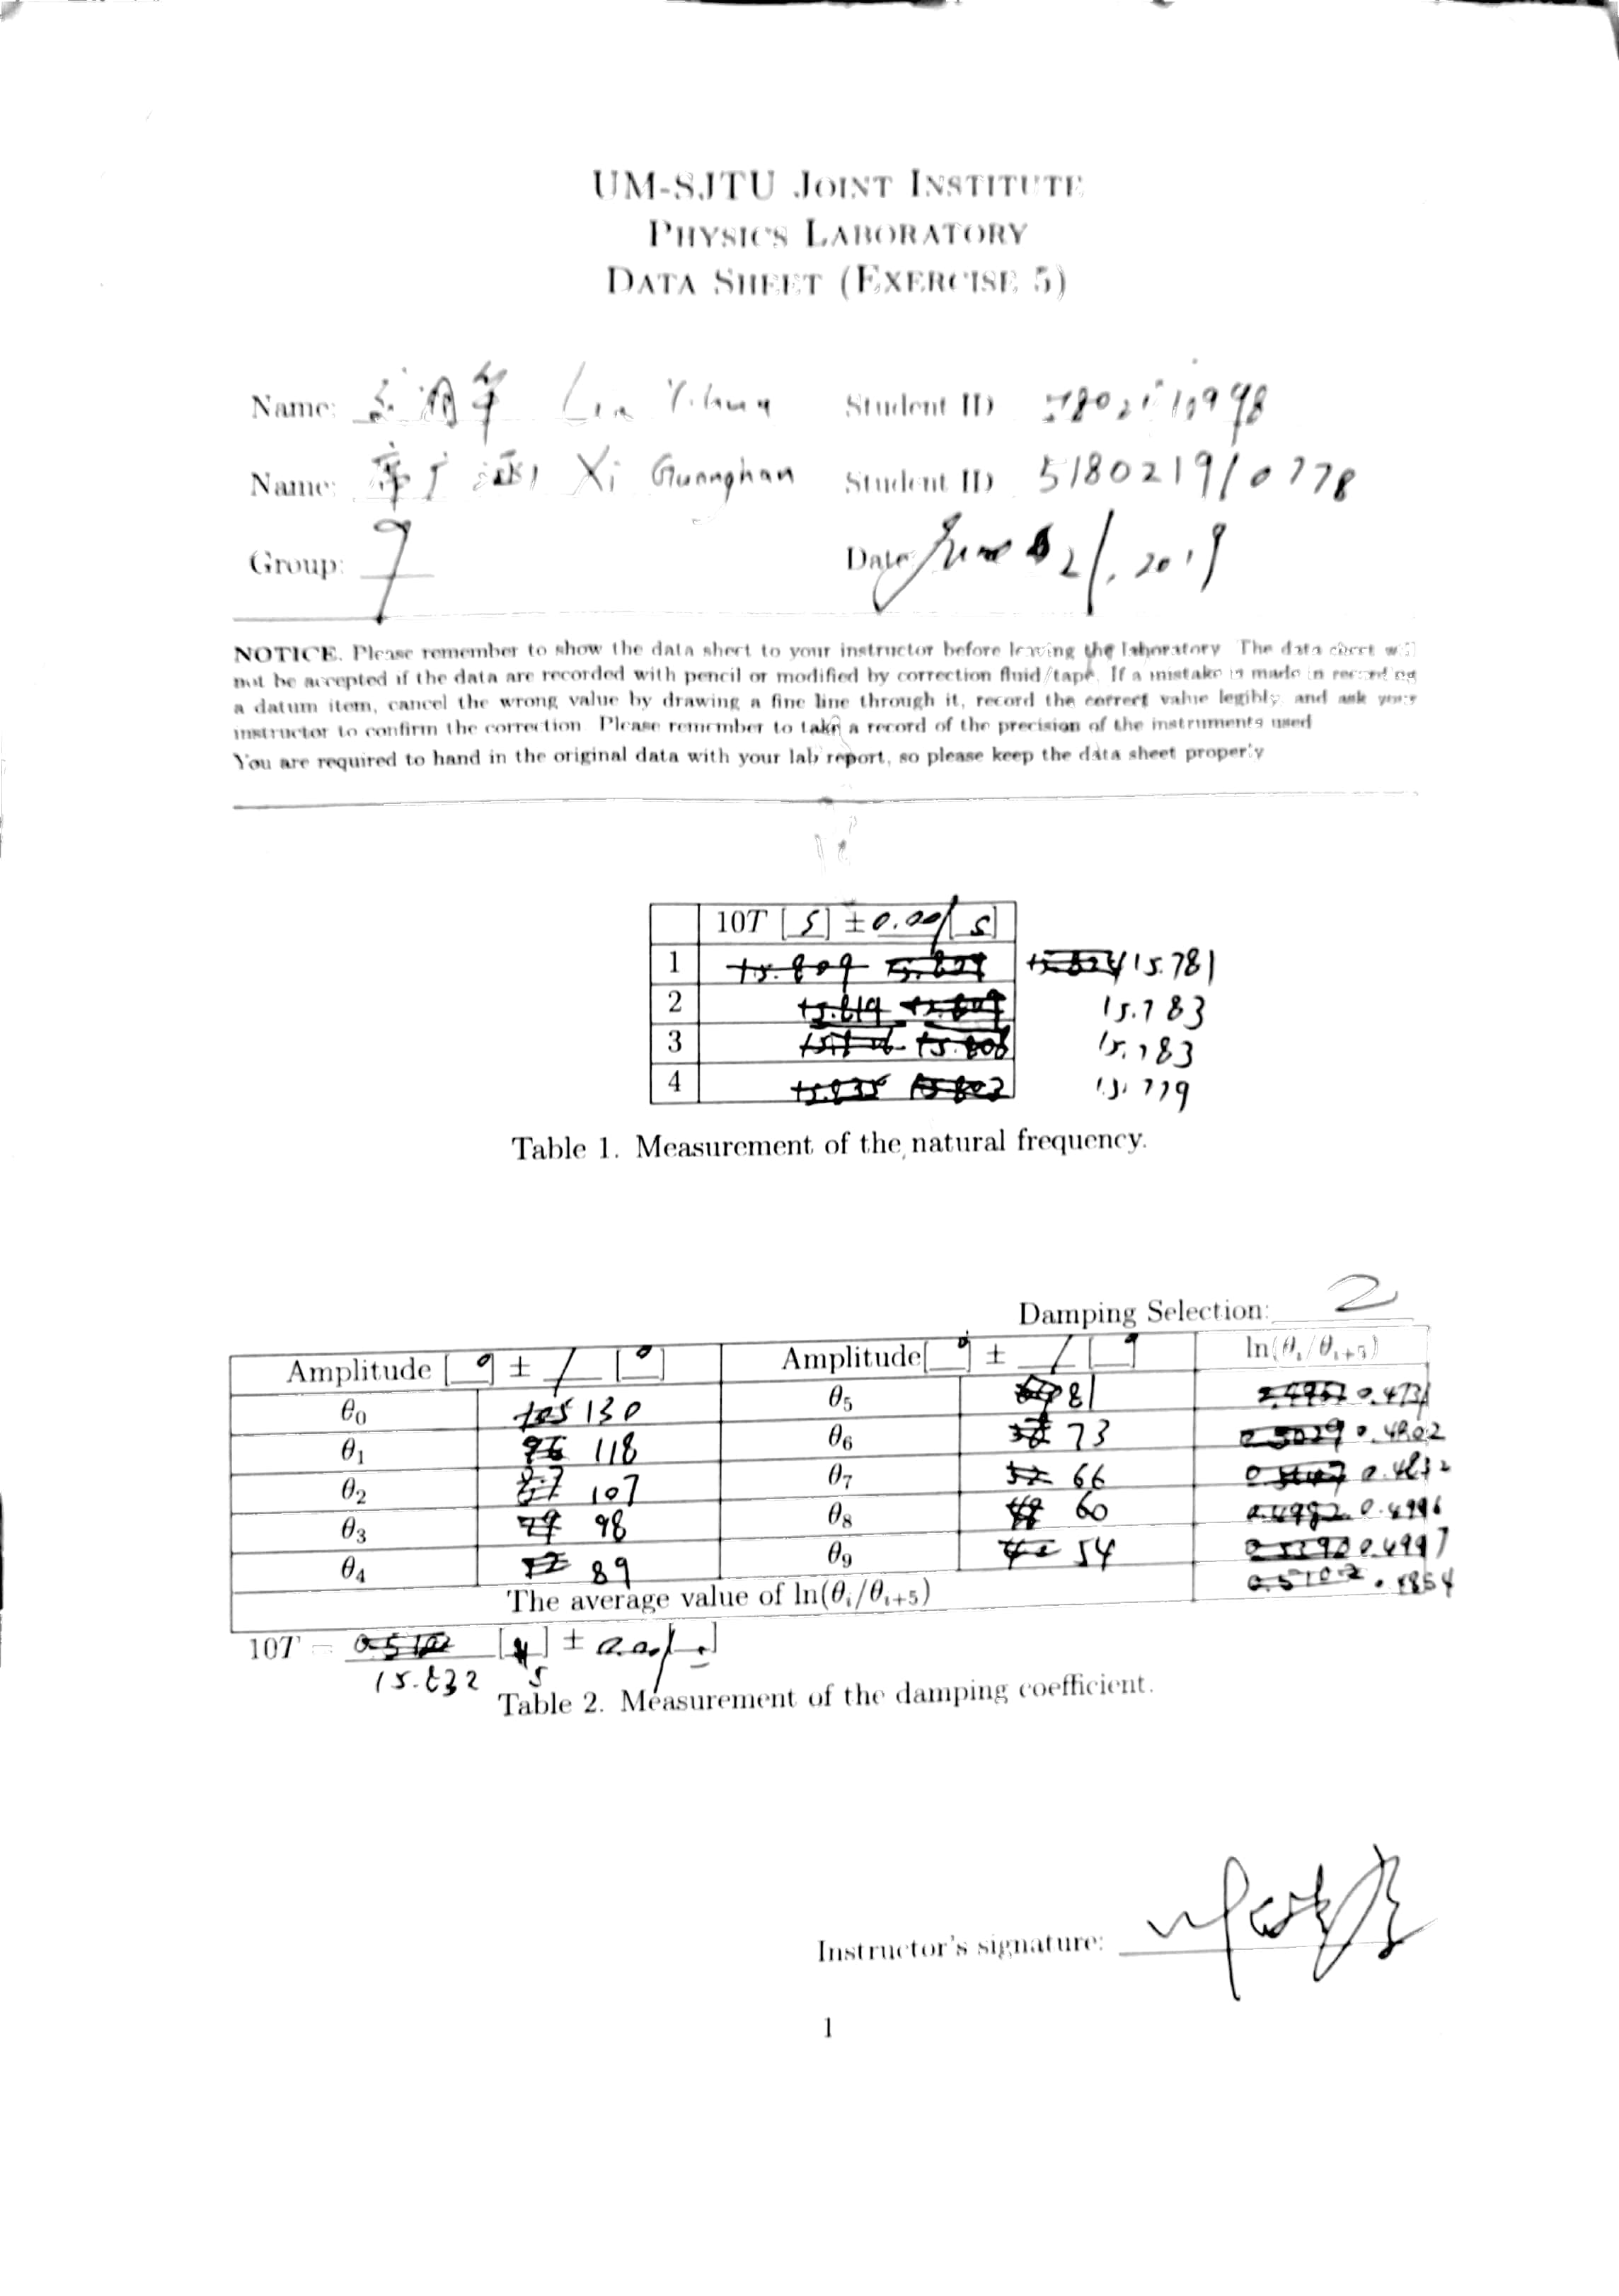 UM-SJTU JOINT INSTITUTE
PHYSICS LABORATORY
DATA SHEET (EXERCISE 5)
Name: Student ID
Name: Xi Guanghan Student ID 518021910778
Group: 9 Date June 21, 2019
NOTICE. Please remember to show the data sheet to your instructor before leaving the laboratory The data sheet will
not be accepted if the data are recorded with pencil or modified by correction fluid/tape. If a mistake is made in recording
a datum item, cancel the wrong value by drawing a fine line through it, record the correct value legibly, and ask your
instructor to confirm the correction Please remember to take a record of the precision of the instruments used
You are required to hand in the original data with your lab report, so please keep the data sheet properly
10T [s] ±0.001[s]
1 15.781
2 15.783
3 15.783
4 15.779
Table 1. Measurement of the natural frequency.
Damping Selection: 2
Amplitude [°] ± 1 [°] Amplitude[°] ± 1 [°] ln(θi/θi+5)
θ0 130 θ5 81 0.4731
θ1 118 θ6 73 0.4802
θ2 107 θ7 66 0.4832
θ3 98 θ8 60 0.4906
θ4 89 θ9 54 0.4997
The average value of ln(θi/θi+5) .4854
10T = 15.832 [s] ± 0.001
Table 2. Measurement of the damping coefficient.
Instructor's signature:
1